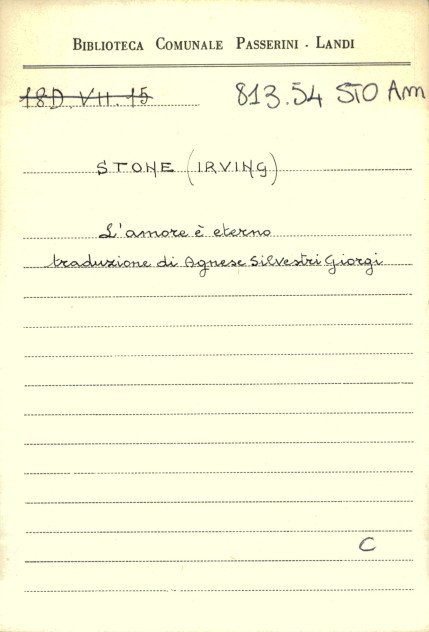 BIBLIOTECA COMUNALE PASSERINI - LANDI
18D.VII.15 813.54 STO Am
STONE (IRVING)
L'amore è eterno
traduzione di Agnese Silvestri Giorgi
C